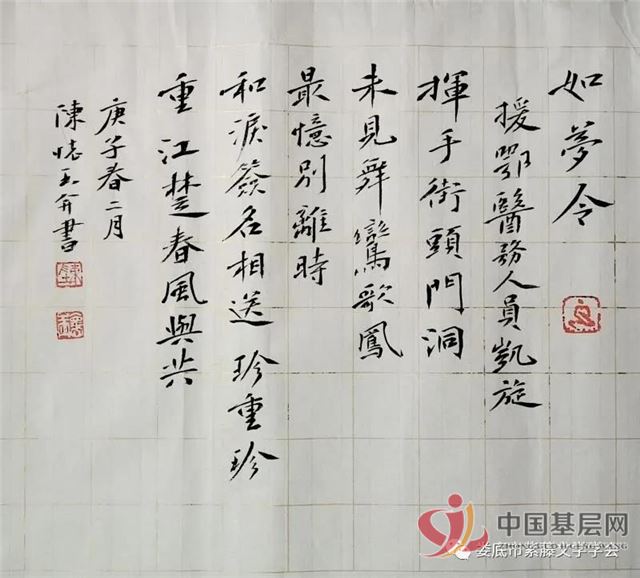 如夢令
援鄂醫務人員凱旋
揮手街頭門洞
未見舞鸞歌鳳
最憶別離時
和淚簽名相送 珍重珍
重江楚春風與共
庚子春二月
陳 書
中国基层网
娄底市紫藤文学学会